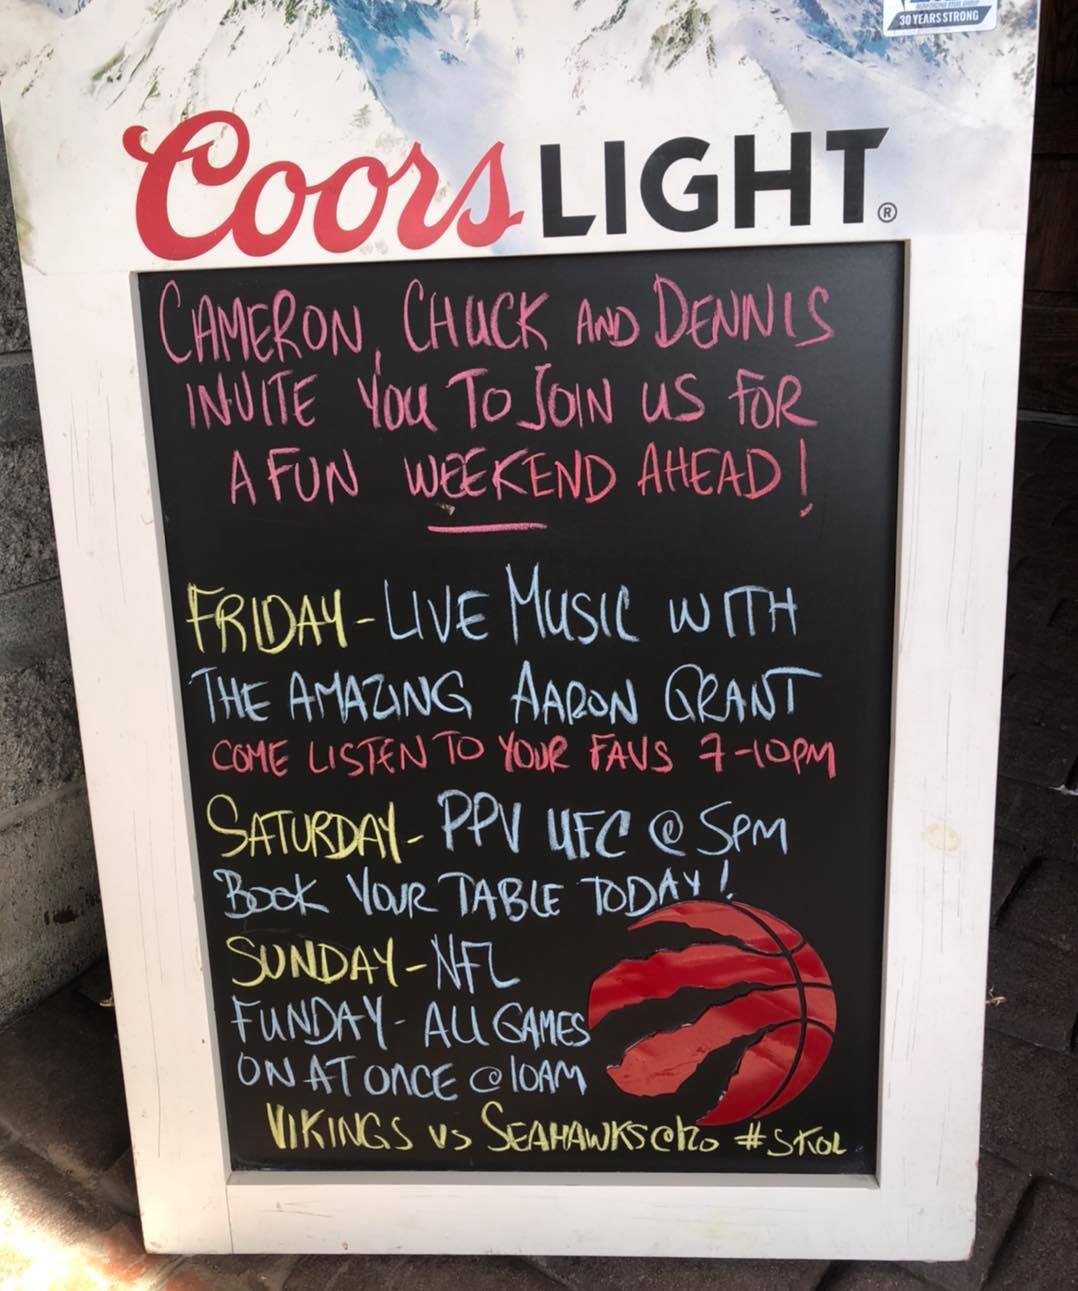 30 YEARS STRONG
Coors LIGHT®
CAMERON, CHUCK AND DENNIS
INVITE YOU TO JOIN US FOR
A FUN WEEKEND AHEAD!
FRIDAY - LIVE MUSIC WITH
THE AMAZING AARON GRANT
COME LISTEN TO YOUR FAVS 7-10PM
SATURDAY - PPV UFC @ 5PM
BOOK YOUR TABLE TODAY!
SUNDAY - NFL
FUNDAY - ALL GAMES
ON AT ONCE @ 10AM
VIKINGS VS SEAHAWKS #SKOL